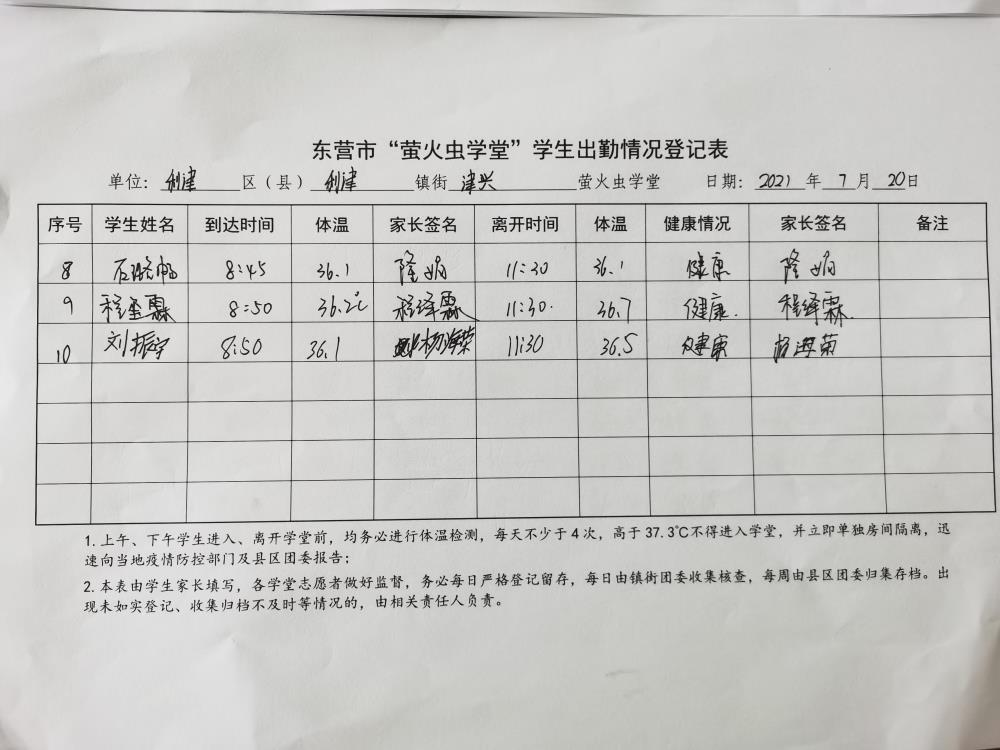 东营市“萤火虫学堂”学生出勤情况登记表
单位: 利津 区(县) 利津 镇街 津兴 萤火虫学堂 日期: 2021 年 7 月 20 日
序号 学生姓名 到达时间 体温 家长签名 离开时间 体温 健康情况 家长签名 备注
8 8:45 36.1 隆娟 11:30 36.1 健康 隆娟
9 8:50 36.2℃ 程绎霖 11:30. 36.7 健康. 程绎霖.
10 刘振宇 8:50 36.1 杨海荣 11:30 36.5 健康 杨海荣
1. 上午、下午学生进入、离开学堂前,均务必进行体温检测,每天不少于 4 次,高于 37.3℃不得进入学堂,并立即单独房间隔离,迅
速向当地疫情防控部门及县区团委报告;
2. 本表由学生家长填写,各学堂志愿者做好监督,务必每日严格登记留存,每日由镇街团委收集核查,每周由县区团委归集存档。出
现未如实登记、收集归档不及时等情况的,由相关责任人负责。